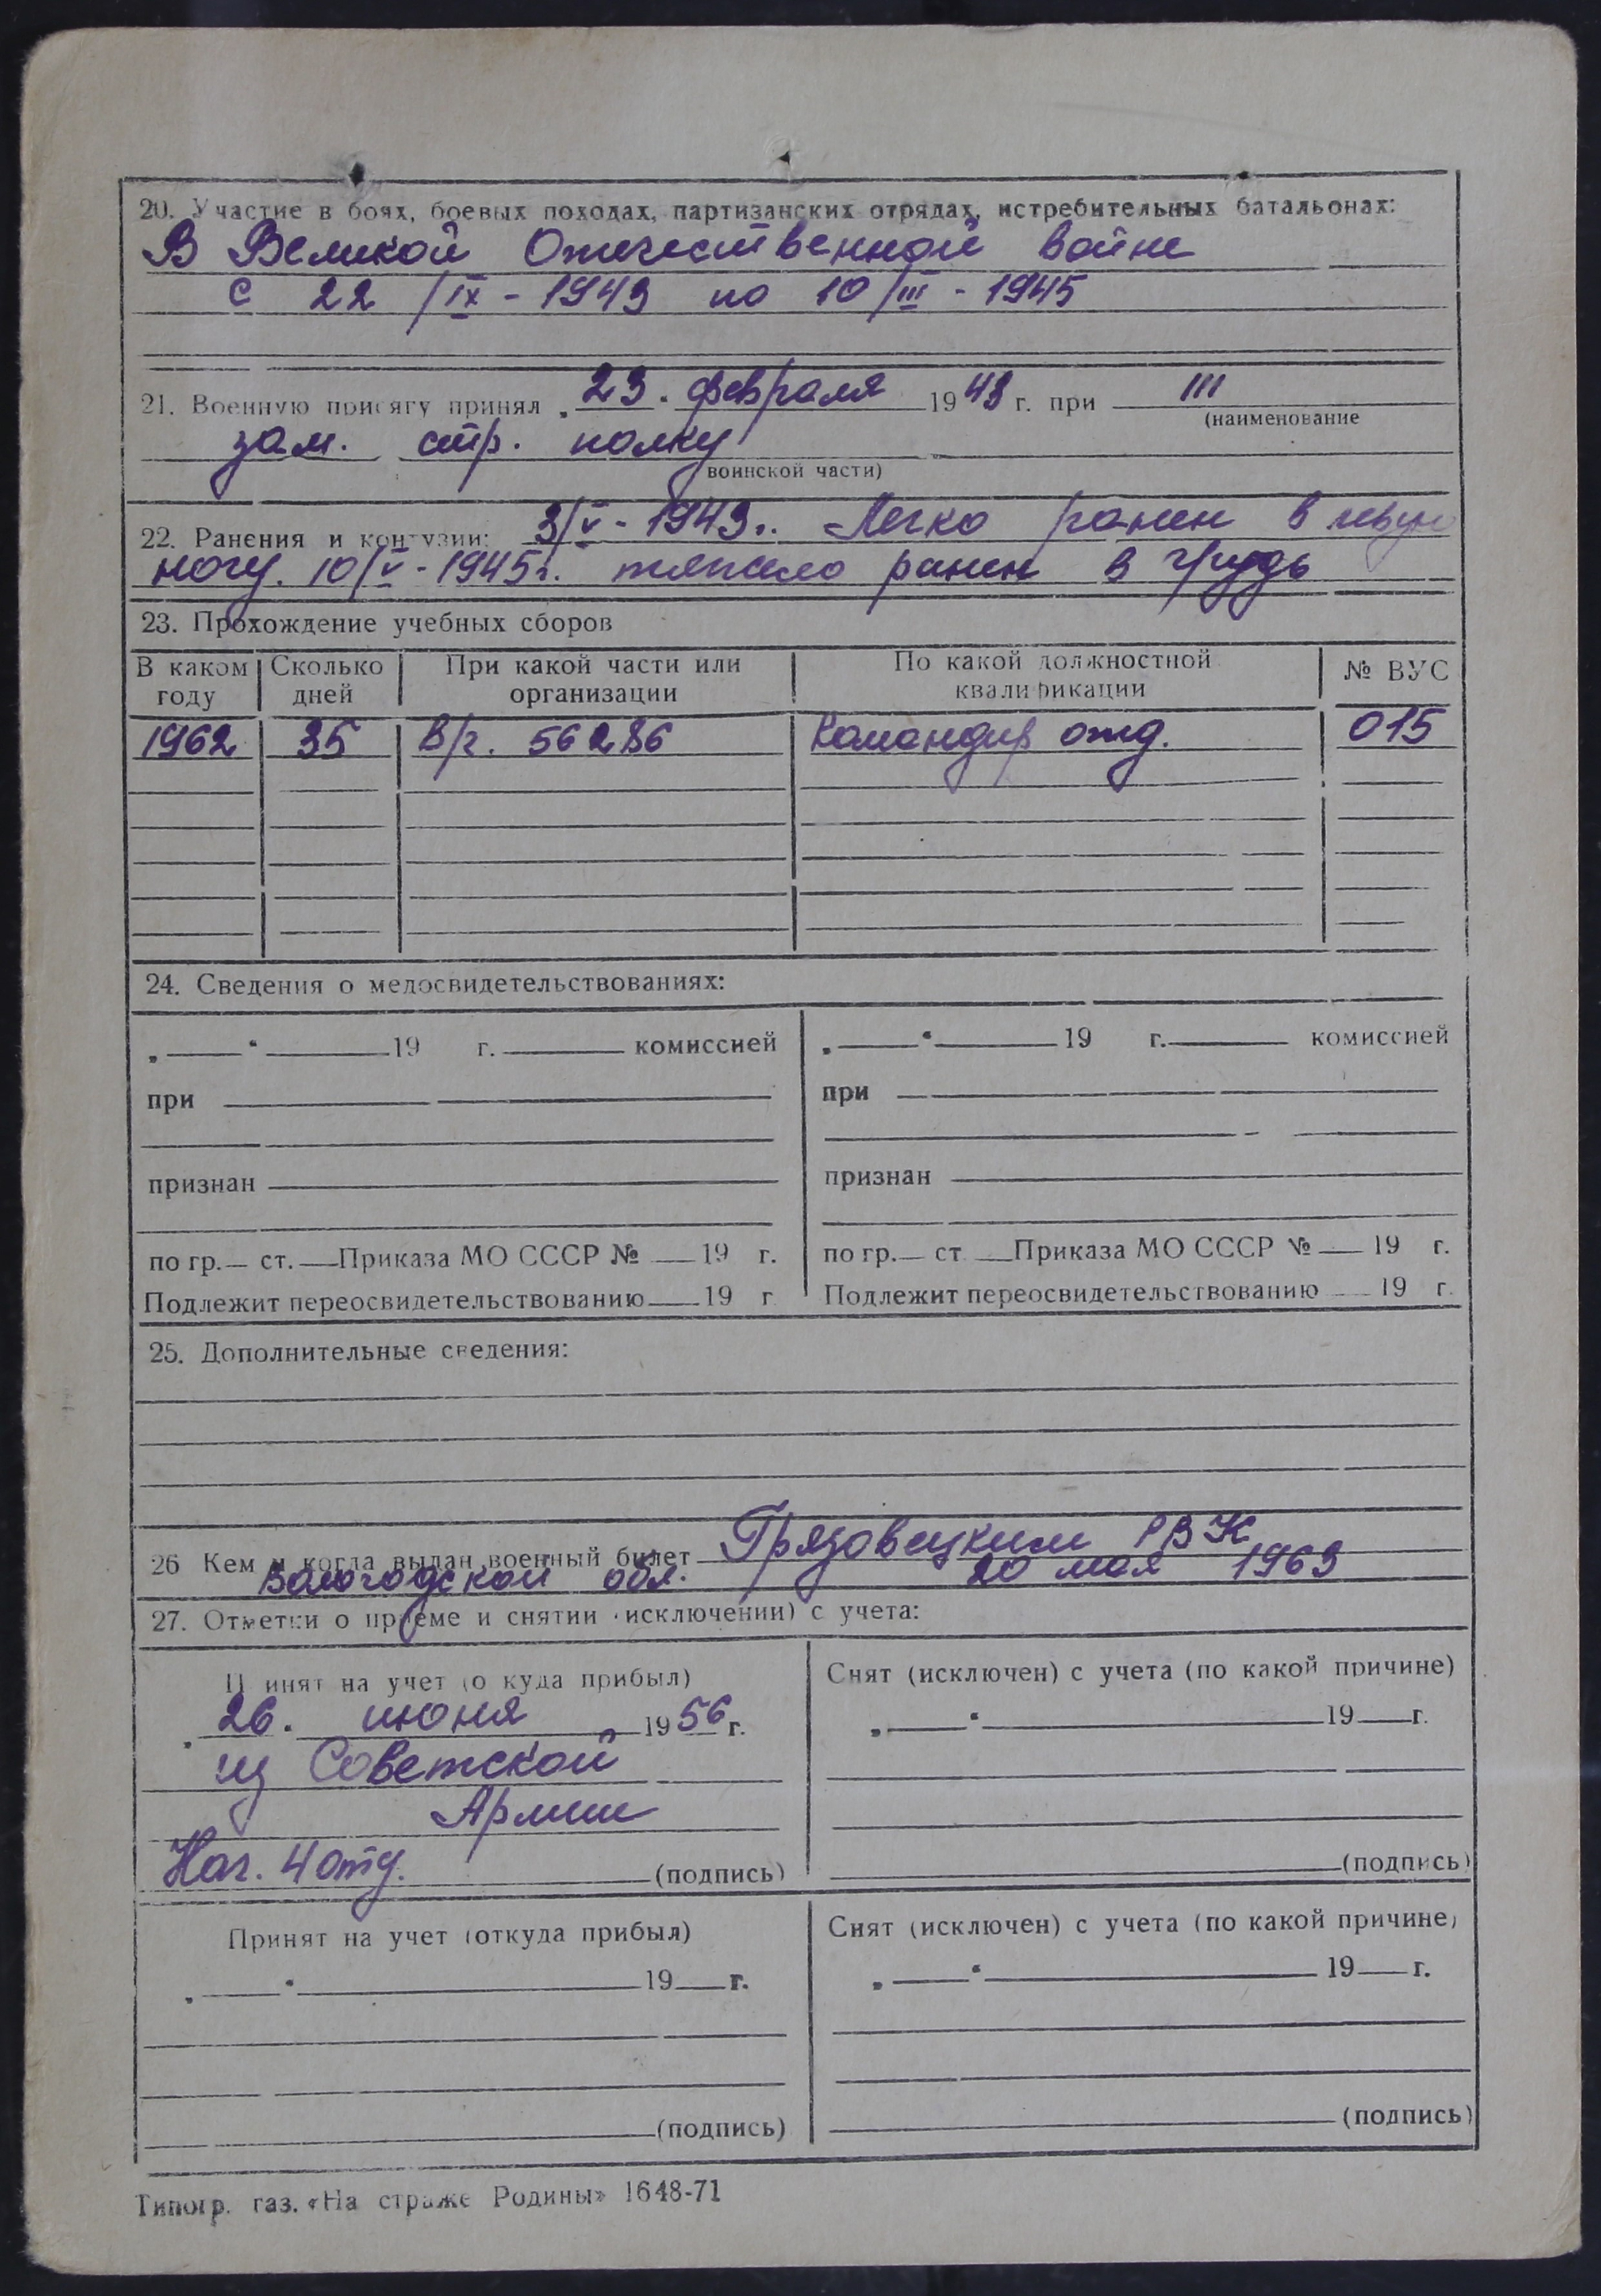 20. Участие в боях, боевых походах, партизанских отрядах, истребительных батальонах:
В Великой Отечественной войне
с 22/IX - 1943 по 10/III - 1945
21. Военную присягу принял „23. февраля 1943 г. при 111
(наименование
зап. стр. полку
воинской части)
22. Ранения и контузии: 3/V - 1943г. Легко ранен в левую
ногу. 10/V - 1945г. тяжело ранен в грудь
23. Прохождение учебных сборов
В каком году Сколько дней При какой части или организации По какой должностной квалификации № ВУС
1962 35 В/ч. 56286 Командир отд. 015
24. Сведения о медосвидетельствованиях:
„ “ 19 г. комиссией
при
признан
по гр. ст. Приказа МО СССР № 19 г.
Подлежит переосвидетельствованию 19 г
„ “ 19 г. комиссией
при
признан
по гр. ст Приказа МО СССР № 19 г.
Подлежит переосвидетельствованию 19 г.
25. Дополнительные сведения:
26 Кем и когда выдан военный билет Грязовецким РВК
Вологодской обл. 20 мая 1963
27. Отметки о приеме и снятии (исключении) с учета:
Принят на учет (откуда прибыл)
„26. июня 1956 г.
из Советской
Армии
Нач. 4 отд. (подпись)
Снят (исключен) с учета (по какой причине)
„ “ 19 г.
(подпись)
Принят на учет (откуда прибыл)
„ “ 19 г.
(подпись)
Снят (исключен) с учета (по какой причине)
„ “ 19 г.
(подпись)
Типогр. газ. «На страже Родины» 1648-71